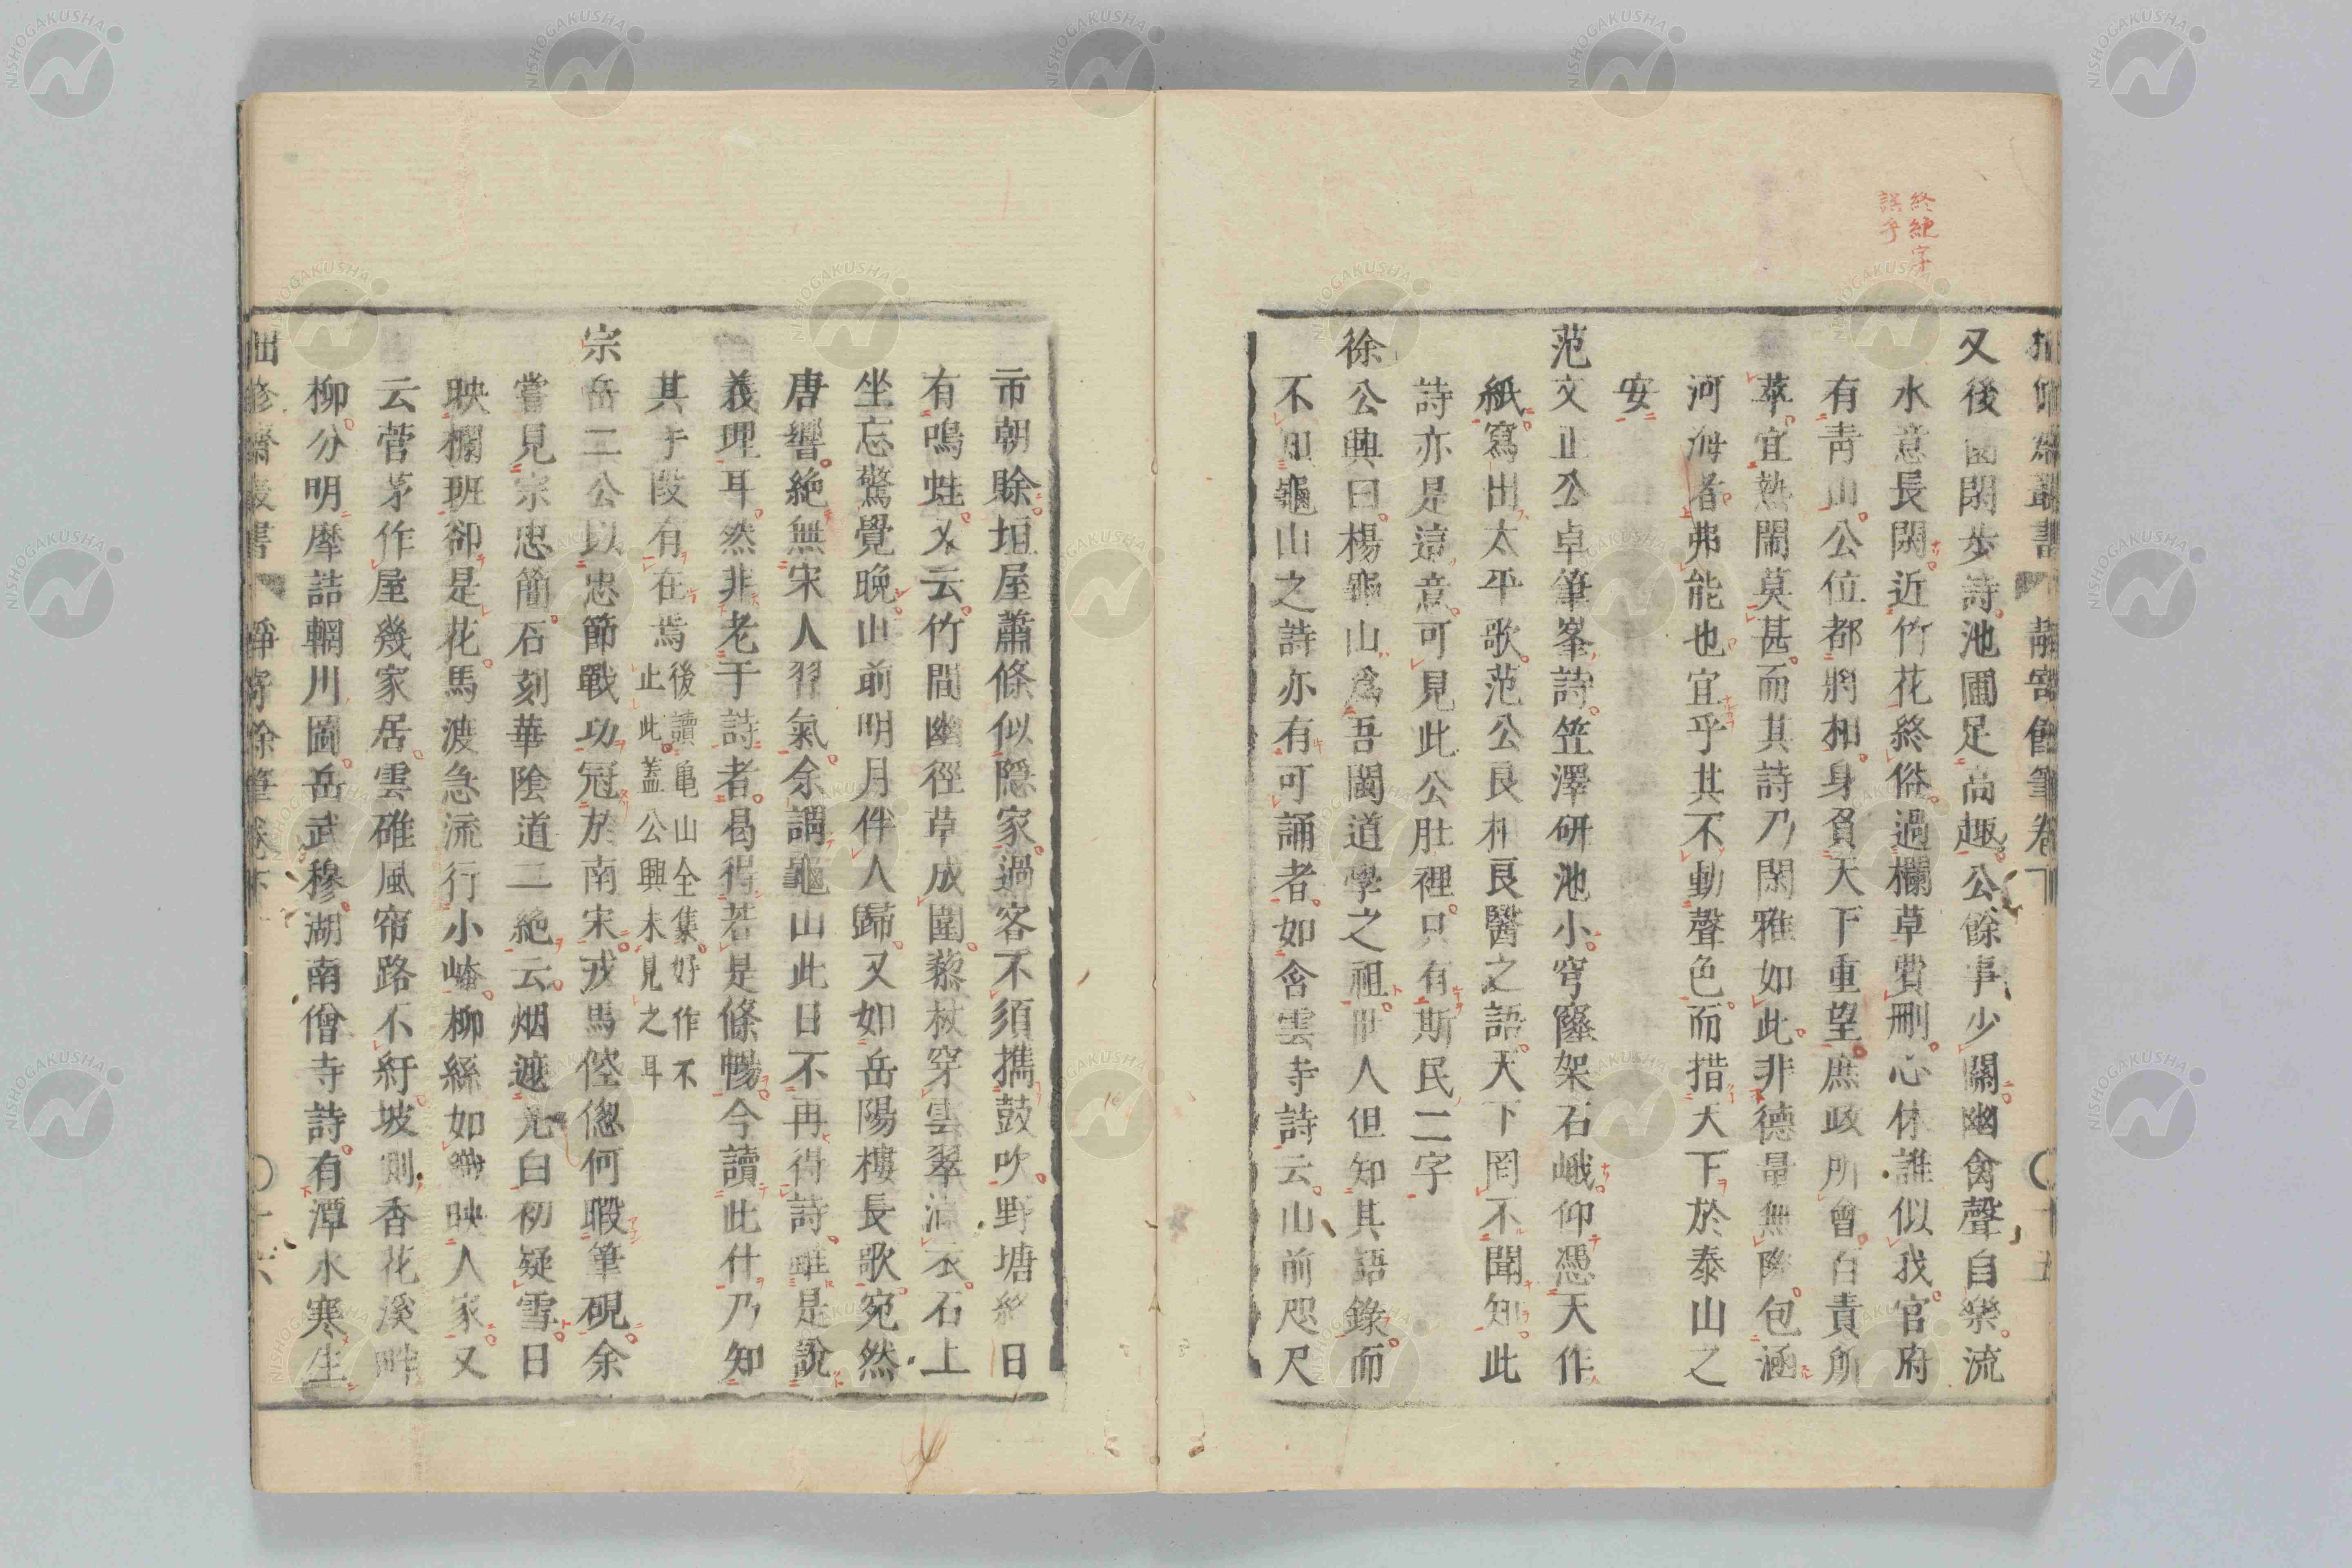 終絶字
誤乎
又後園閑步詩池圃足高趣公餘事少關幽禽聲自樂流
水意長閑近竹花終俗過欄草費刪心休誰似我官府
有靑山公位都將相身負天下重望庶政所會百責所
萃宜熱鬧莫甚而其詩乃閑雅如此非德量無際包涵
河海者弗能也宜乎其不動聲色而措天下於泰山之
安
范文正公卓筆峯詩笠澤研池小穹窿架石峨仰憑天作
紙寫出太平歌范公良相良醫之語天下罔不聞知此
詩亦是這意可見此公肚裡只有斯民二字
徐公興曰楊龜山爲吾閩道學之祖世人但知其語錄而
不知龜山之詩亦有可誦者如含雲寺詩云山前咫尺
市朝賒垣屋蕭條似隱家過客不須攜鼓吹野塘終日
有鳴蛙又云竹間幽徑草成圍藜杖穿雲翠滿衣石上
坐忘驚覺晚山前明月伴人歸又如岳陽樓長歌宛然
唐響絶無宋人習氣余謂龜山此日不再得詩雖是說
義理耳然非老于詩者曷得若是條暢今讀此什乃知
其手段有在焉後讀龜山全集好作不
止此蓋公興未見之耳
宗岳二公以忠節戰功冠於南宋戎馬倥傯何暇筆硯余
嘗見宗忠簡石刻華陰道二絶云烟遮晃白初疑雪日
映欄班卻是花馬渡急流行小崦柳絲如織映人家又
云菅茅作屋幾家居雲碓風帘路不紆坡側香花溪畔
柳分明摩詰輞川圖岳武穆湖南僧寺詩有潭水寒生
靜寄餘筆卷下